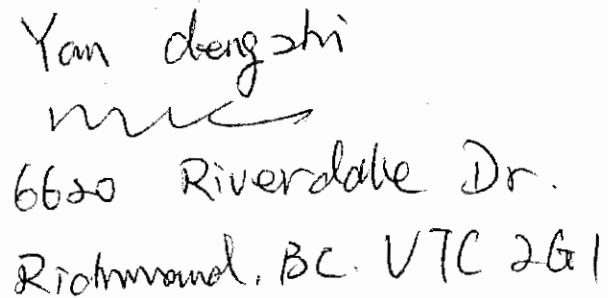 Yan dengzhi
6620 Riverdale Dr.
Richmond, BC. V7C 2G1